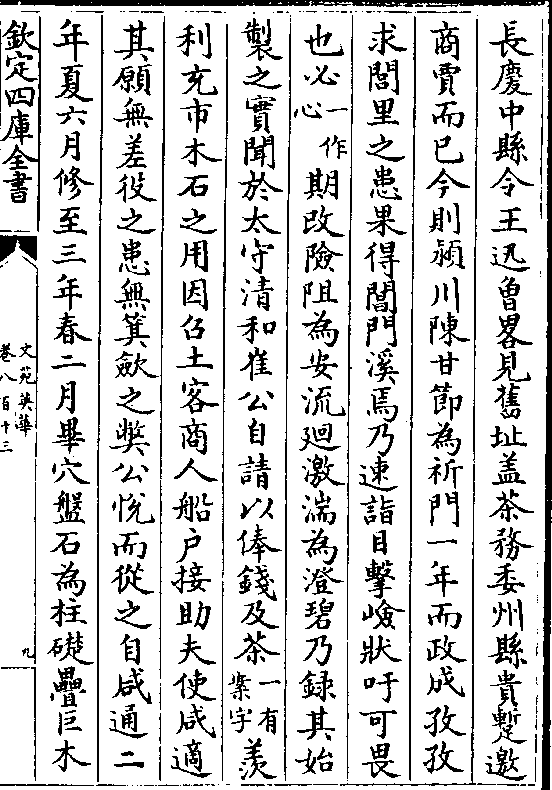 長慶中縣令王迅魯畧見舊址盖茶務委州縣貴蹔邀
商賈而巳今則潁川陳甘節為祈門一年而政成孜孜
求閭里之患果得閶門溪焉乃速詣目擊嶮狀吁可畏
也必一作心期改險阻為安流廻激湍為澄碧乃録其始
製之實聞於太守清和崔公自請以俸錢及茶一有業字羨
利充市木石之用因召土客商人船户接助夫使咸適
其願無差役之患無箕歛之獘公恱而從之自咸通二
年夏六月修至三年春二月畢穴盤石為柱礎疊巨木
欽定四庫全書
文苑英華
卷八百十三
九